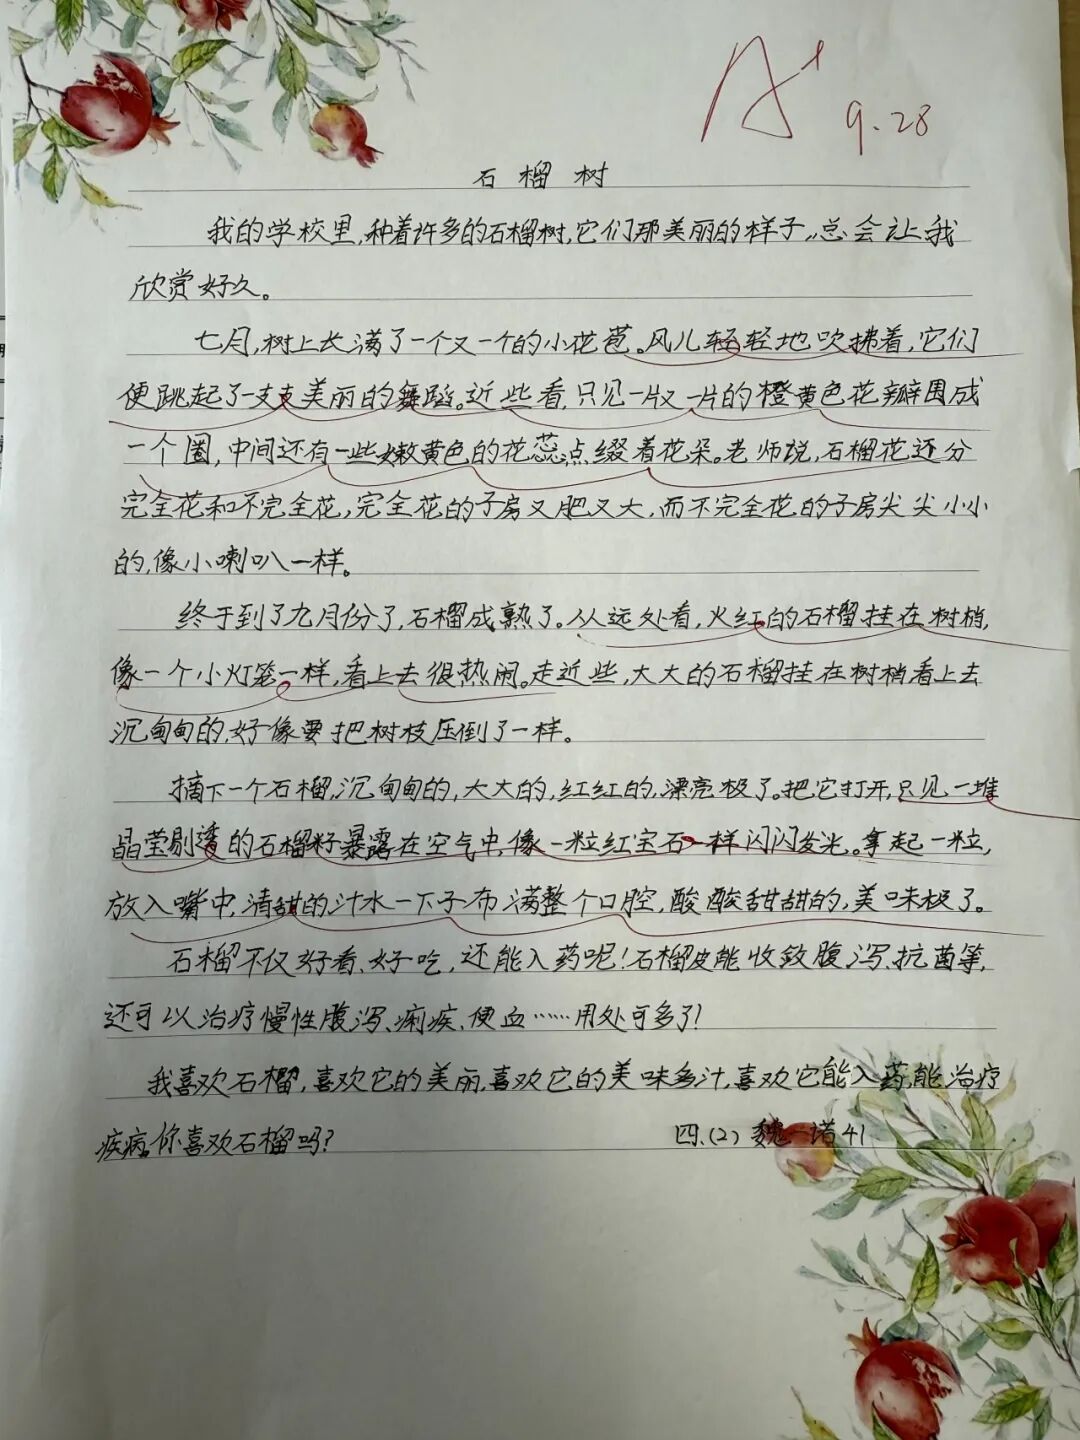 A+
9.28
石榴树
我的学校里,种着许多的石榴树,它们那美丽的样子,总会让我
欣赏好久。
七月,树上长满了一个又一个的小花苞。风儿轻轻地吹拂着,它们
便跳起了一支支美丽的舞蹈。近些看,只见一片又一片的橙黄色花瓣围成
一个圈,中间还有一些嫩黄色的花蕊点缀着花朵。老师说,石榴花还分
完全花和不完全花,完全花的子房又肥又大,而不完全花的子房尖尖小小
的,像小喇叭一样。
终于到了九月份了,石榴成熟了。从远处看,火红的石榴挂在树梢,
像一个小灯笼一样,看上去很热闹。走近些,大大的石榴挂在树梢看上去
沉甸甸的,好像要把树枝压倒了一样。
摘下一个石榴,沉甸甸的,大大的,红红的,漂亮极了。把它打开,只见一堆
晶莹剔透的石榴籽暴露在空气中,像一粒红宝石一样闪闪发光。拿起一粒,
放入嘴中,清甜的汁水一下子布满整个口腔,酸酸甜甜的,美味极了。
石榴不仅好看、好吃,还能入药呢!石榴皮能收敛腹泻、抗菌等,
还可以治疗慢性腹泻、痢疾、便血……用处可多了!
我喜欢石榴,喜欢它的美丽,喜欢它的美味多汁,喜欢它能入药,能治疗
疾病。你喜欢石榴吗?
四.(2) 魏一诺41